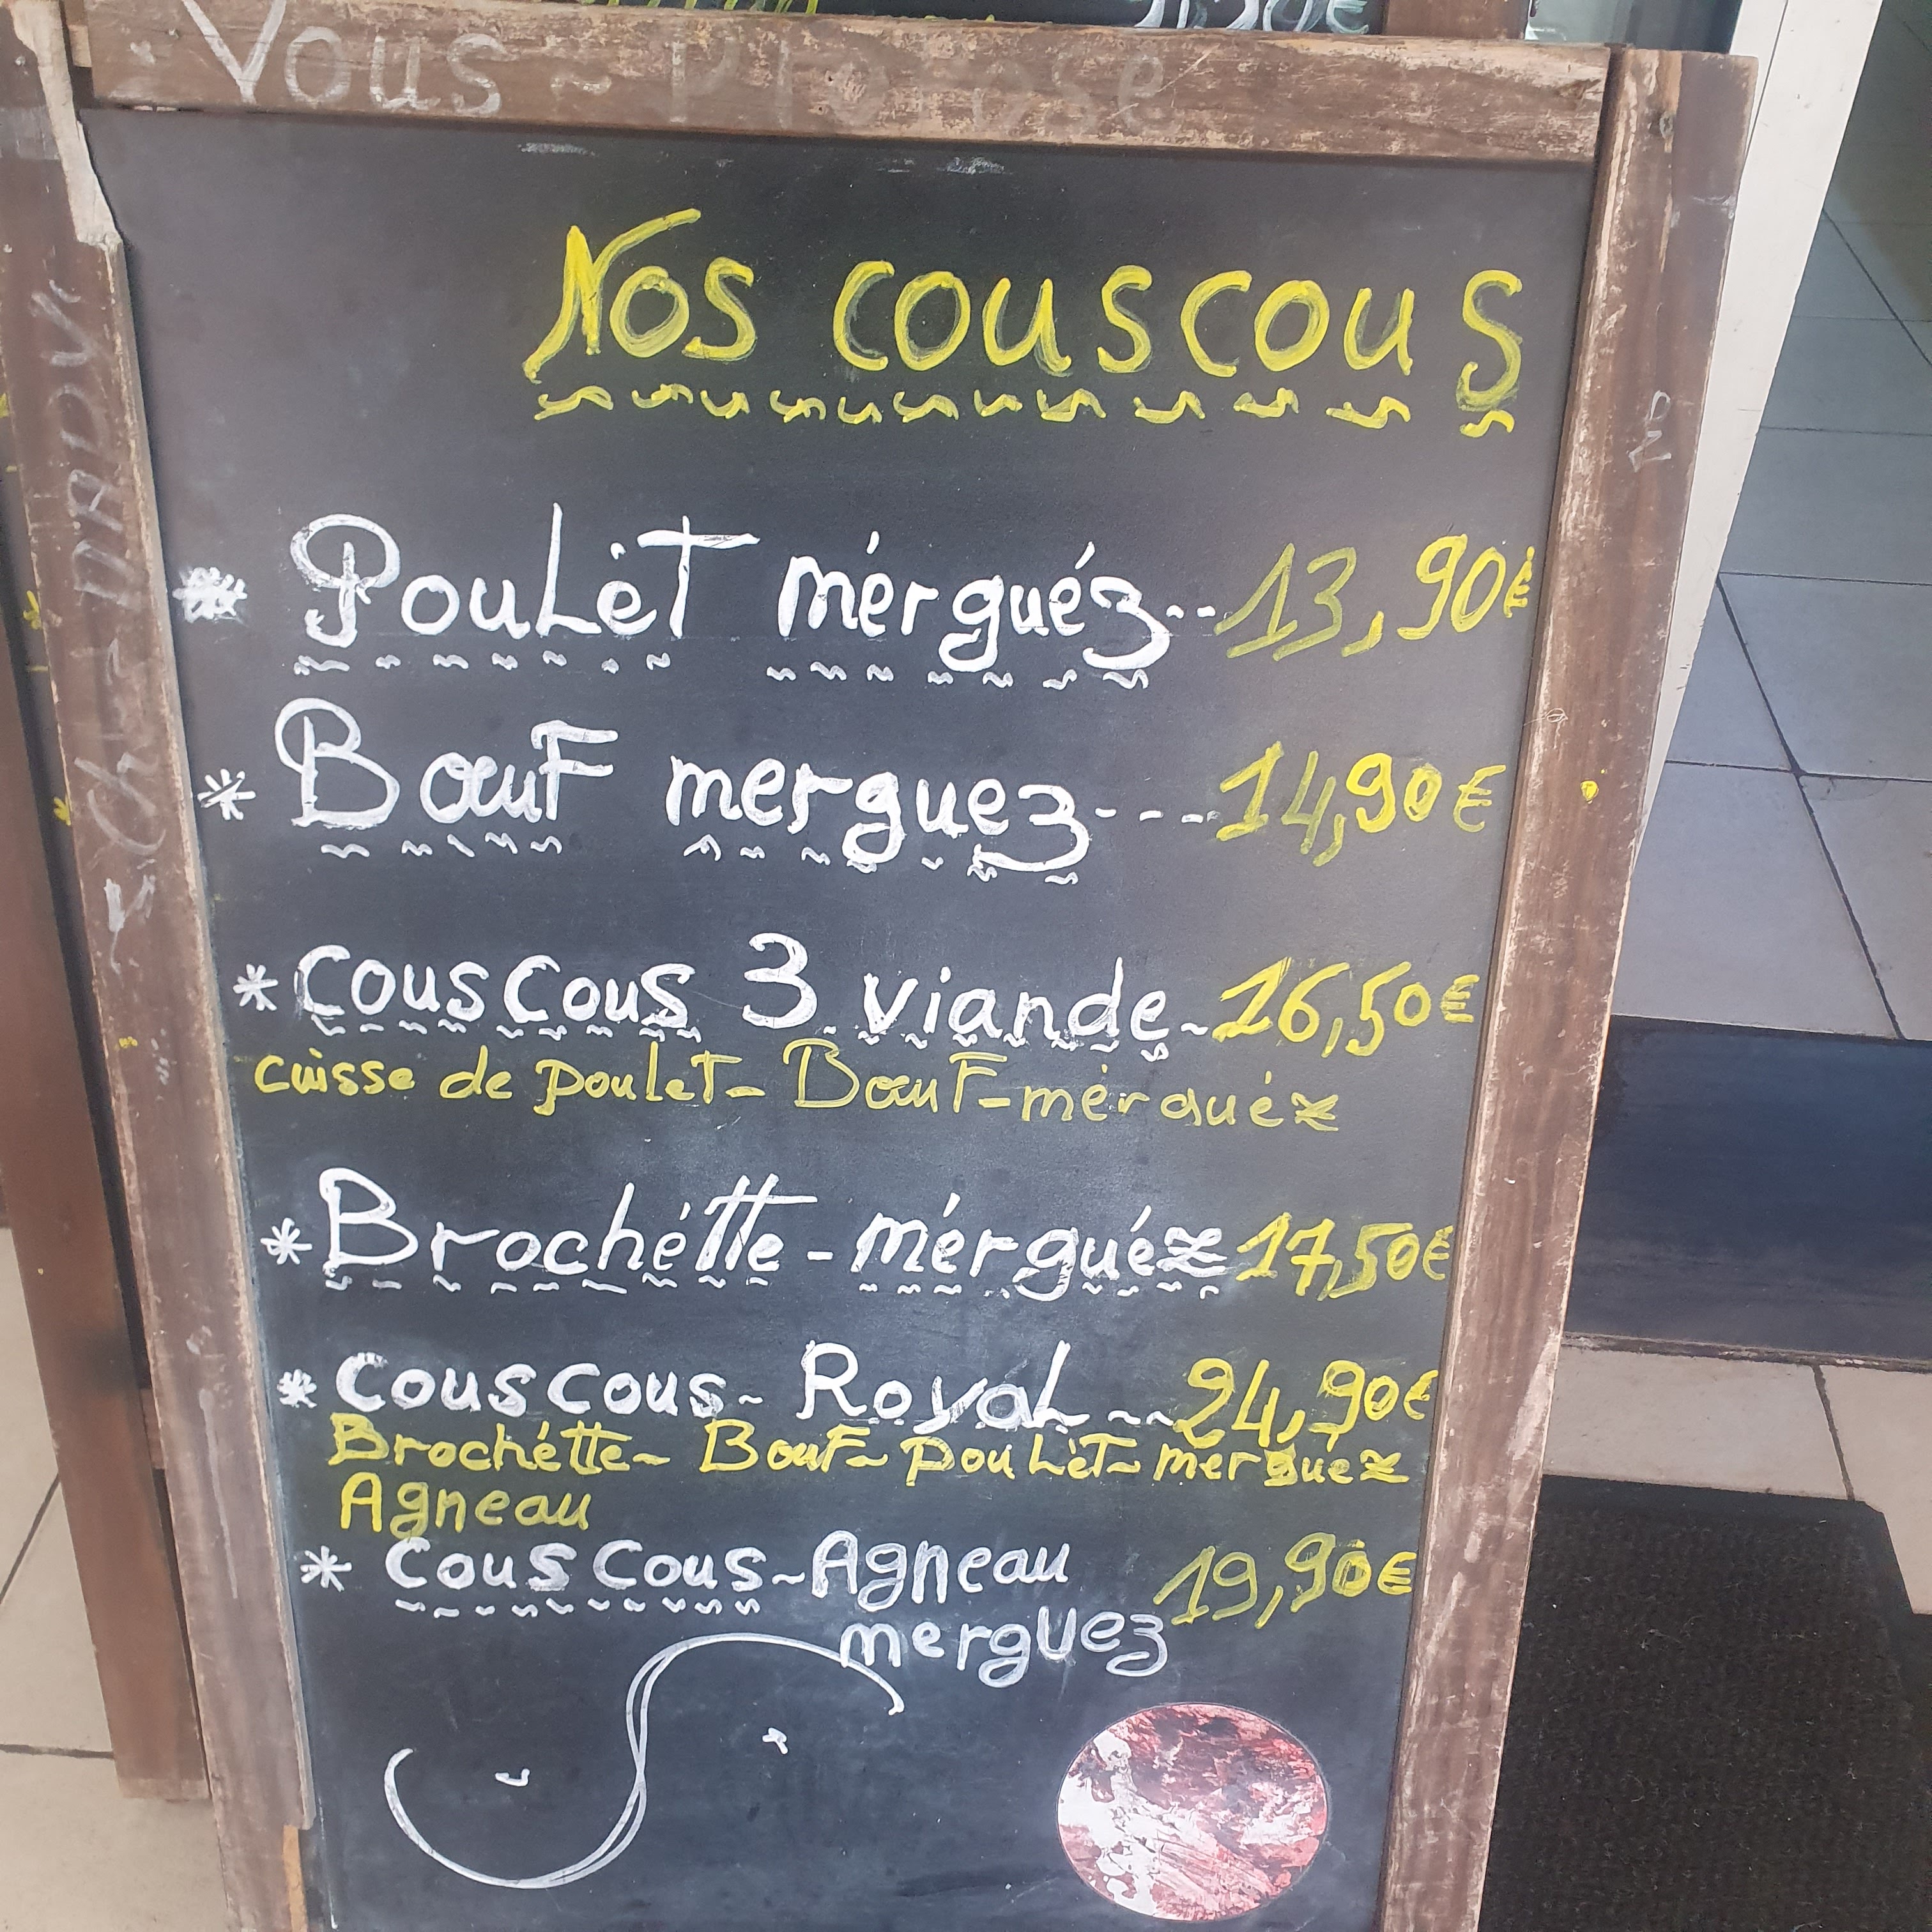 Vous ~ Propose
Nos couscous
* PouLèT mérguéz--13,90€
* BœuF merguez---14,90€
* couscous 3 viande-16,50€
cuisse de pouLeT- BœuF-mérguéz
* Brochétte-mérguéz 17,50€
* couscous- RoyaL--24,90€
Brochétte- BœuF- pouLèT- merguéz
Agneau
* couscous-Agneau 19,90€
merguez